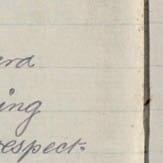 ard
ing
respect.